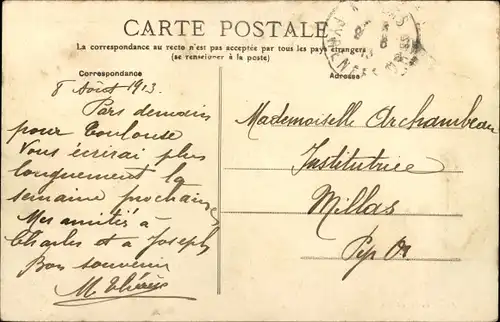 CARTE POSTALE
La correspondance au recto n'est pas acceptée par tous les pays étrangers
(se renseigner à la poste)
Correspondance
Adresse
8 Août 1913.
Pars demain
pour Toulouse
Vous écrirai plus
longuement la
semaine prochaine
Mes amitiés à
Charles et à Joseph
Bon souvenir
M
Mademoiselle Archambeau
Institutrice
Millas
Pyr Or.